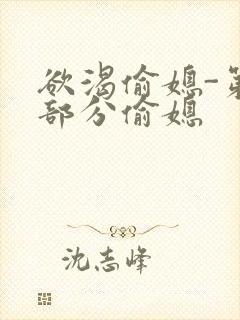 欲渴偷媳-第
部分偷媳
沈志峰